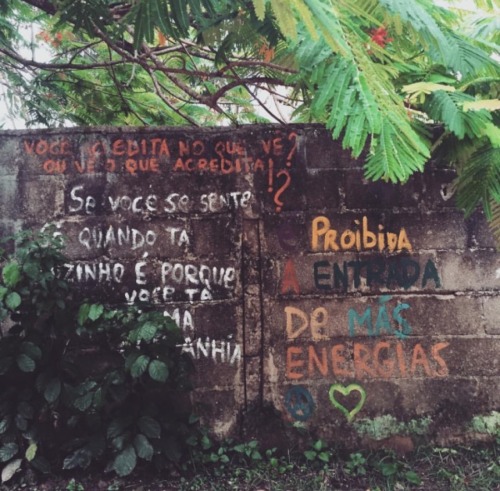 VOCÊ CREDITA NO QUE VÊ?
OU VÊ O QUE ACREDITA!?
Se você se sente
Só QUANDO TA
ZINHO É PORQUE
VOCE TÁ
MA
ANHIA
PROIBIDA
A ENTRADA
De MÁS
ENERGIAS